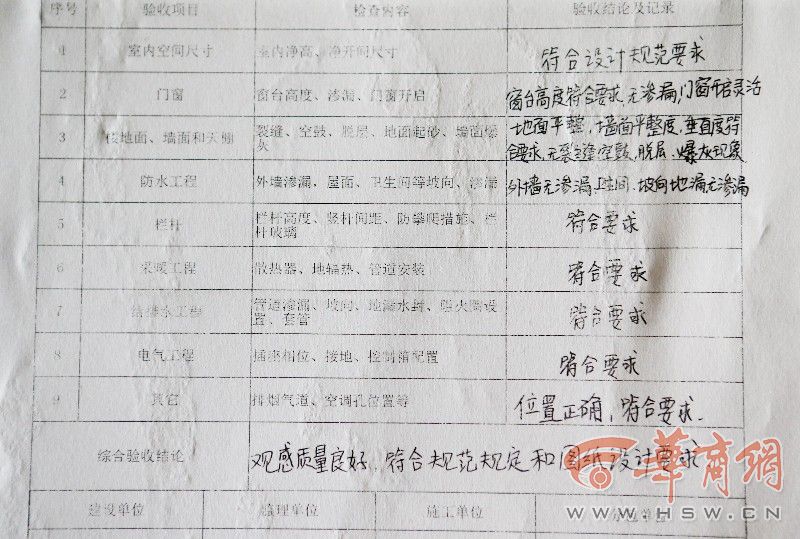 序号 验收项目 检查内容 验收结论及记录
1 室内空间尺寸 室内净高、净开间尺寸 符合设计规范要求
2 门窗 窗台高度、渗漏、门窗开启 窗台高度符合要求,无渗漏,门窗开启灵活
3 楼地面、墙面和天棚 裂缝、空鼓、脱层、地面起砂、墙面爆
灰
地面平整,墙面平整度,垂直度符
合要求,无裂缝空鼓,脱层、爆灰现象
4 防水工程 外墙渗漏、屋面、卫生间等坡向、渗漏 外墙无渗漏卫生间、坡向地漏无渗漏
5 栏杆 栏杆高度、竖杆间距、防攀爬措施、栏
杆玻璃
符合要求
6 采暖工程 散热器、地辐热、管道安装 符合要求
7 给排水工程 管道渗漏、坡向、地漏水封、阻火圈设
置、套管
符合要求
8 电气工程 插座相位、接地、控制箱配置 符合要求
9 其它 排烟气道、空调孔位置等 位置正确,符合要求.
综合验收结论 观感质量良好.符合规范规定和图纸设计要求
建设单位 监理单位 施工单位 分包单位
華商網
WWW.HSW.CN